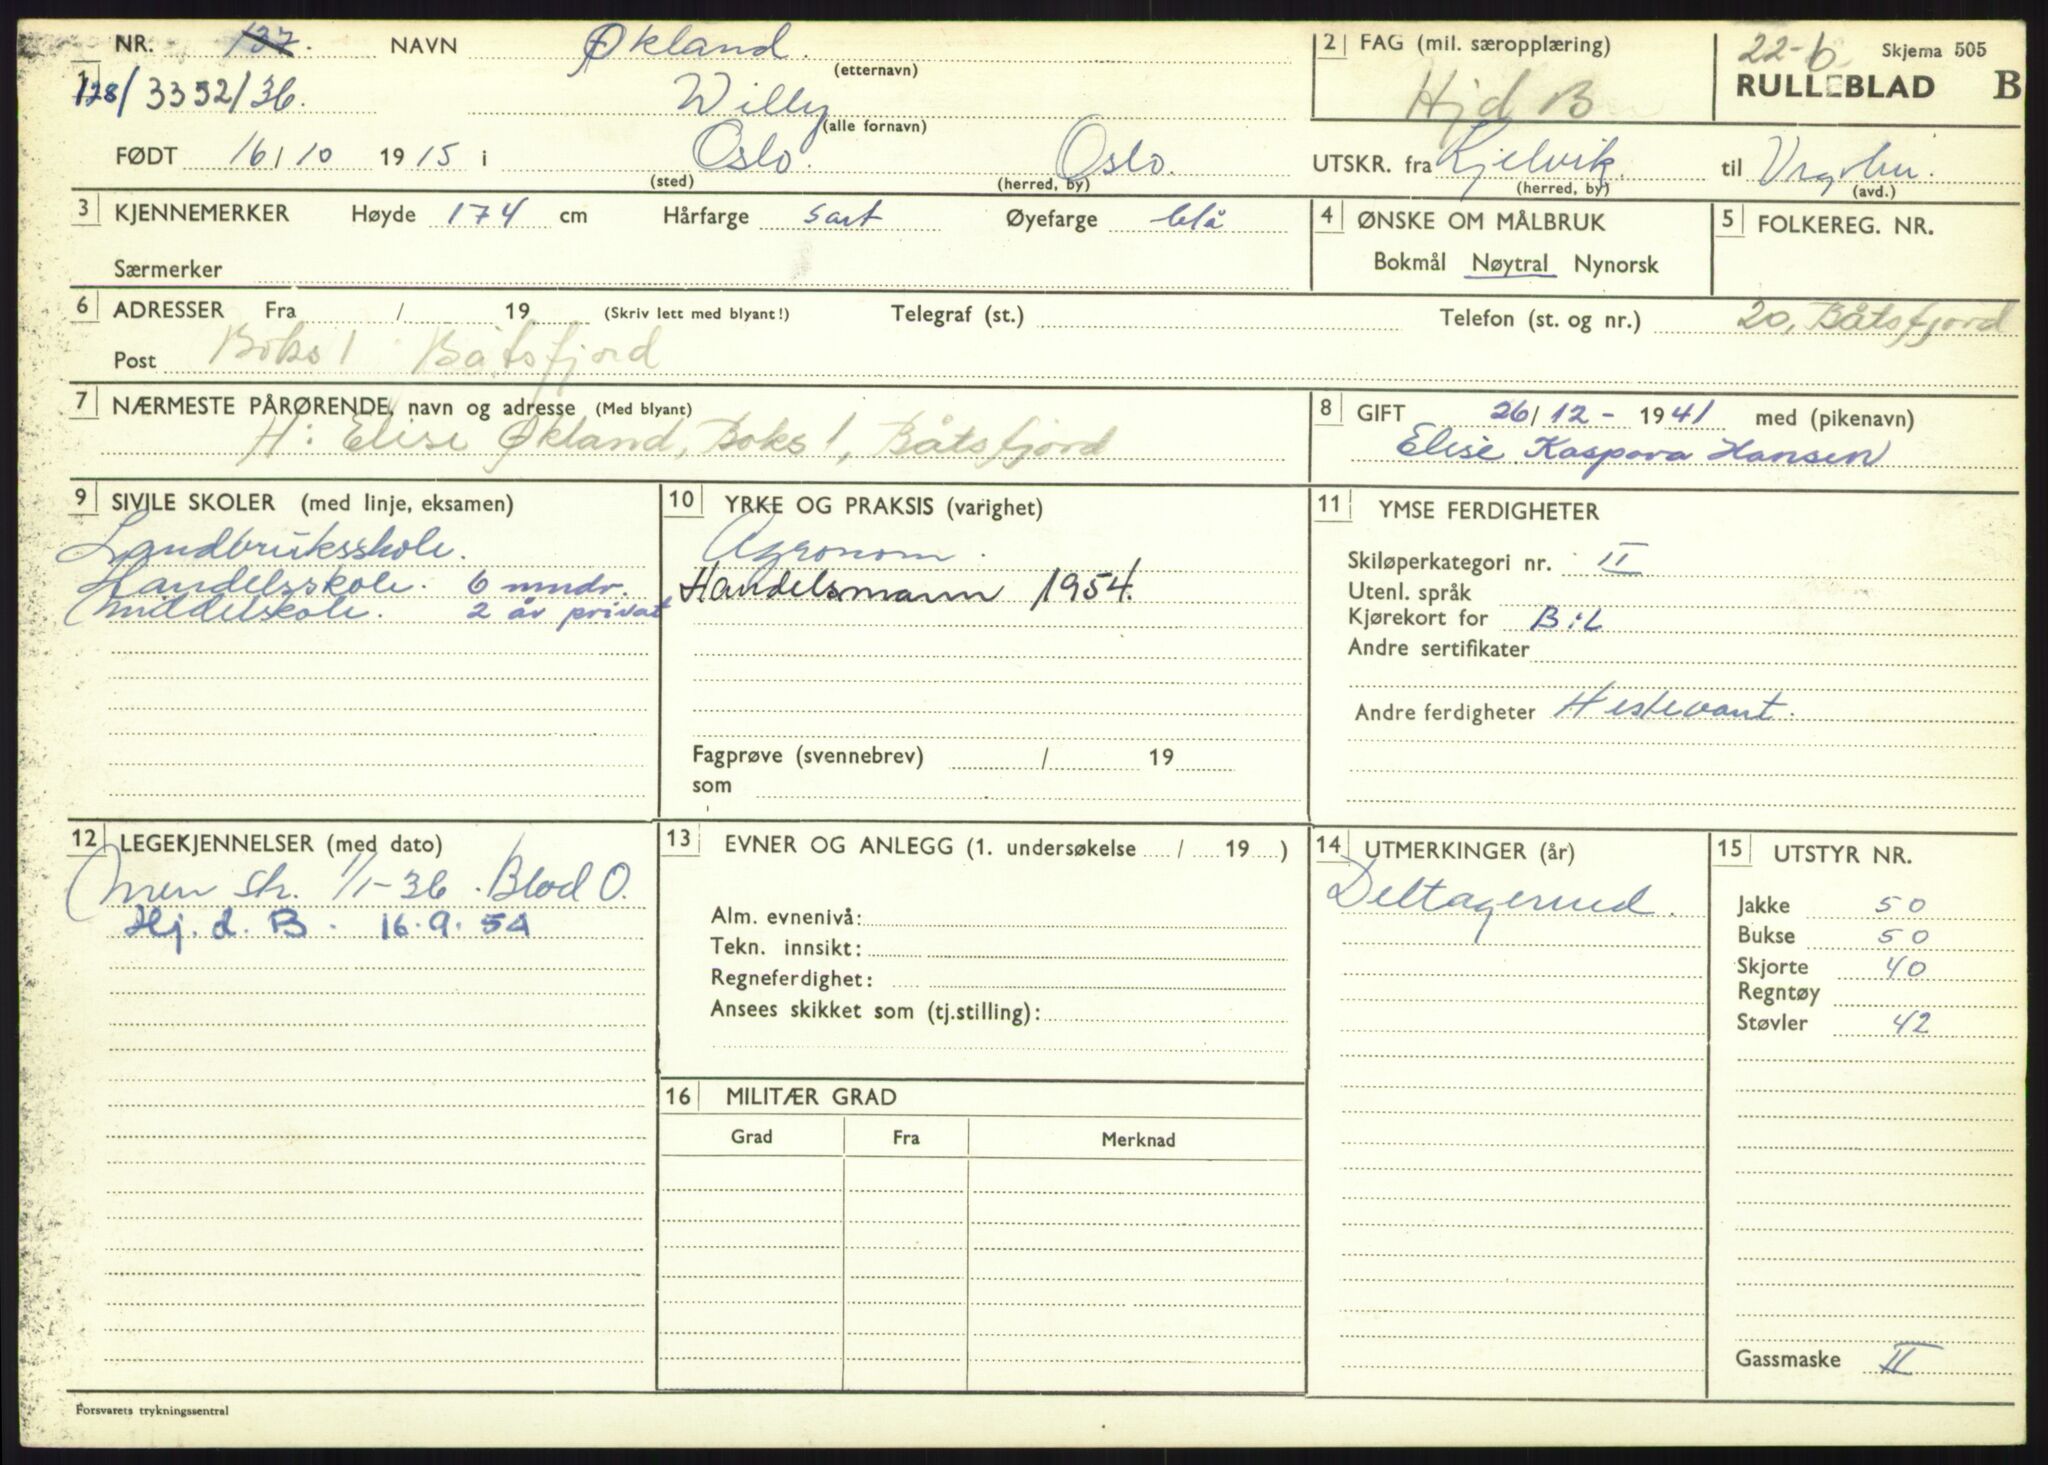 NR. 137. NAVN Økland. (etternavn)
1 128/3352/36. Willy (alle fornavn)
FØDT 16/10 1915 i Oslo. (sted) Oslo. (herred, by)
2 FAG (mil. særopplæring)
Hjd B
22-6 Skjema 505
RULLEBLAD B
UTSKR. fra Kjelvik. (herred, by) til (avd.)
3 KJENNEMERKER Høyde 174 cm Hårfarge sart Øyefarge blå
Særmerker
4 ØNSKE OM MÅLBRUK
Bokmål Nøytral Nynorsk
5 FOLKEREG. NR.
6 ADRESSER Fra / 19 (Skriv lett med blyant!) Telegraf (st.) Telefon (st. og nr.) 20, Båtsfjord
Post Boks 1 Båtsfjord
7 NÆRMESTE PÅRØRENDE, navn og adresse (Med blyant)
H: Elise Økland, Boks 1, Båtsfjord
8 GIFT 26/12- 1941 med (pikenavn)
Elise Kaspara Hansen
9 SIVILE SKOLER (med linje, eksamen)
Landbruksskole.
Handelsskole. 6 mndr.
Middelskole. 2 år privat
10 YRKE OG PRAKSIS (varighet)
Agronom.
Handelsmann 1954.
Fagprøve (svennebrev) / 19
som
11 YMSE FERDIGHETER
Skiløperkategori nr. II
Utenl. språk
Kjørekort for Bil
Andre sertifikater
Andre ferdigheter Hestevant.
12 LEGEKJENNELSER (med dato)
sk. 1/1-36. Blod O.
Hj. d. B. 16.9.54
13 EVNER OG ANLEGG (1. undersøkelse / 19 )
Alm. evnenivå:
Tekn. innsikt:
Regneferdighet:
Ansees skikket som (tj.stilling):
14 UTMERKINGER (år)
Deltagermed.
15 UTSTYR NR.
Jakke 50
Bukse 50
Skjorte 40
Regntøy
Støvler 42
Gassmaske II
16 MILITÆR GRAD
Grad Fra Merknad
Forsvarets trykningssentral